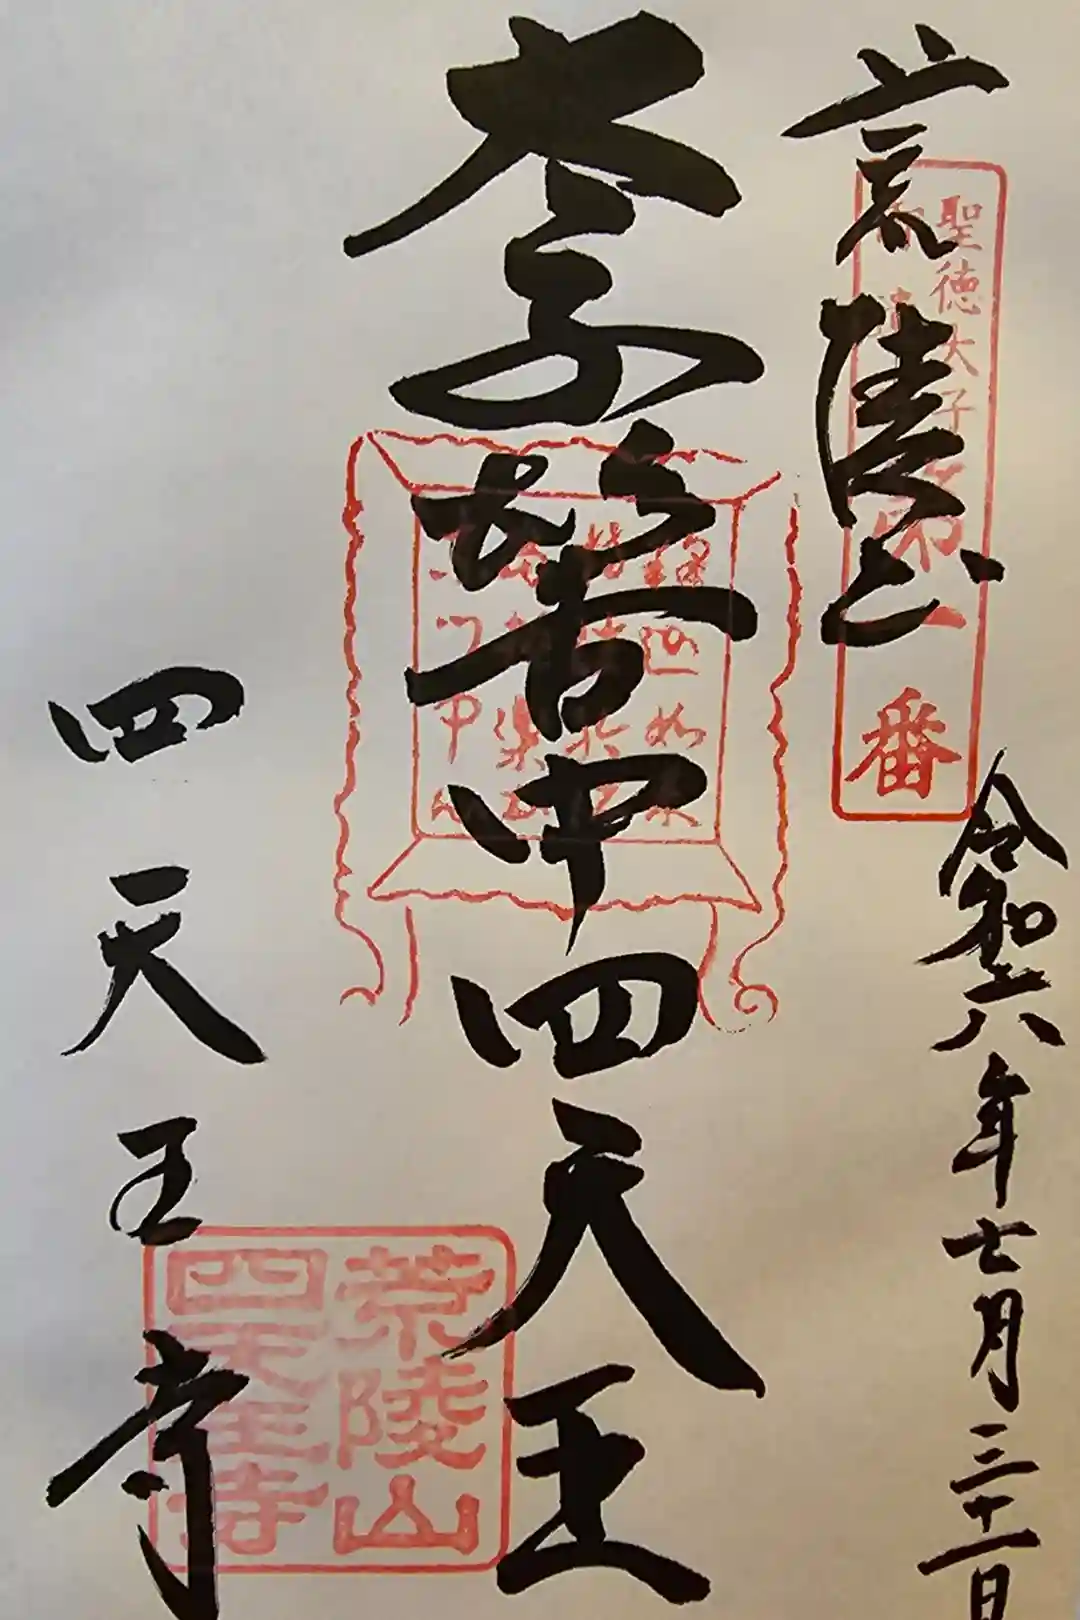 荒陵山
聖徳太子
第一番
令和六年七月三十一日
太子誓中四天王
釋迦如来
四天王寺
荒陵山
四天王寺